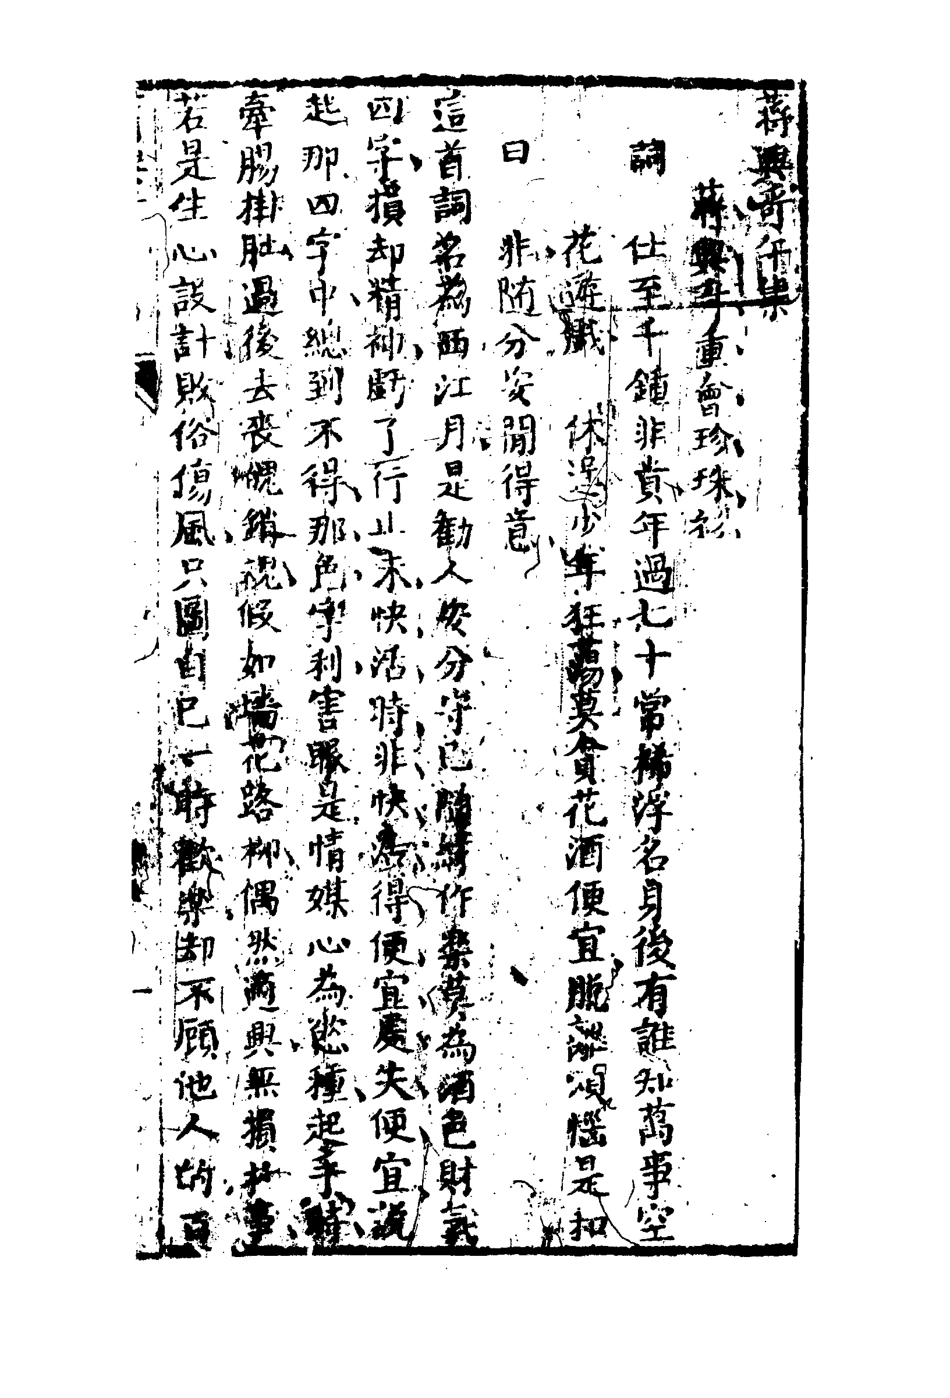 蔣興哥
蔣興哥重會珍珠衫
詞　仕至千鍾非貴年過七十常稀浮名身後有誰知萬事空
花遊戲　休逞少年狂蕩莫貪花酒便宜脫離煩惱是和
曰　非随分安閒得意
這首詞名為西江月是勸人安分守己隨緣作樂莫為酒色財氣
四字損却精神虧了行止求快活時非快活得便宜處失便宜說
起那四字中總到不得那色字利害眼是情媒心為慾種起手時
牽腸掛肚過後去喪魄銷魂假如墻花路柳偶然適興無損於事
若是生心設計敗俗傷風只圖自己一時歡樂却不顧他人的百